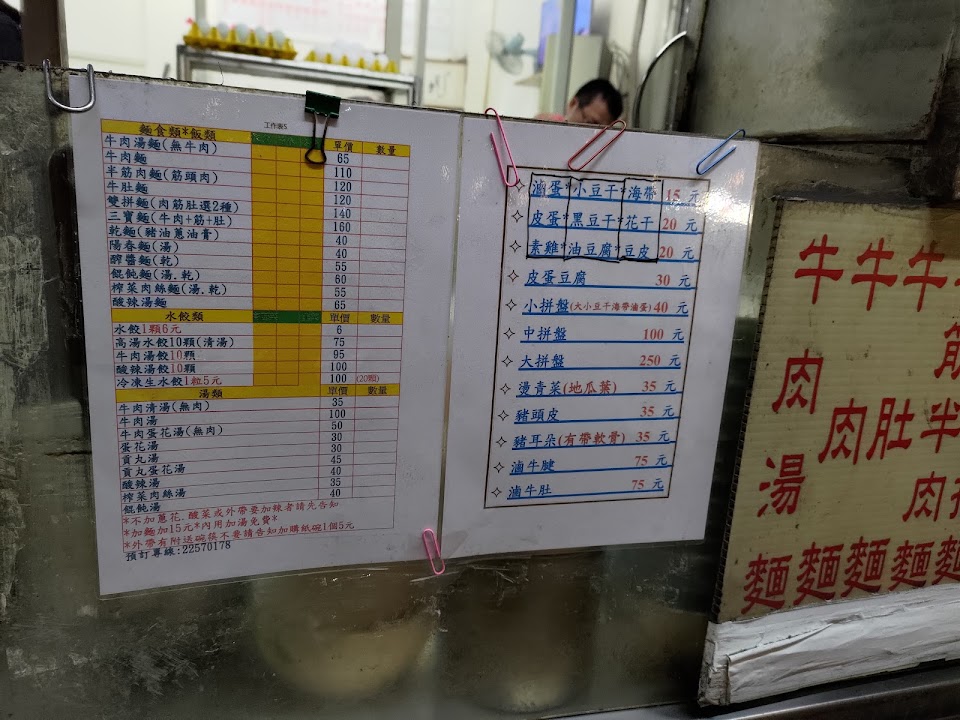 工作表5
麵食類*飯類 單價 數量
牛肉湯麵(無牛肉) 65
牛肉麵 110
半筋肉麵(筋頭肉) 120
牛肚麵 120
雙拼麵(肉筋肚選2種) 140
三寶麵(牛肉+筋+肚) 160
乾麵(豬油蔥油膏) 40
陽春麵(湯) 40
醡醬麵(乾) 55
餛飩麵(湯.乾) 60
榨菜肉絲麵(湯.乾) 55
酸辣湯麵 65
水餃類 單價 數量
水餃1顆6元 6
高湯水餃10顆(清湯) 75
牛肉湯餃10顆 95
酸辣湯餃10顆 100
冷凍生水餃1粒5元 100 (20顆)
湯類 單價 數量
牛肉清湯(無肉) 35
牛肉湯 100
牛肉蛋花湯(無肉) 50
蛋花湯 30
貢丸湯 30
貢丸蛋花湯 45
酸辣湯 40
榨菜肉絲湯 35
餛飩湯 40
*不加蔥花.酸菜或外帶要加辣者請先告知
*加麵加15元*內用加湯免費*
*外帶有附送碗筷不要請告知加購紙碗1個5元
預訂專線:22570178
滷蛋*小豆干*海帶 15 元
皮蛋*黑豆干*花干 20 元
素雞*油豆腐*豆皮 20 元
皮蛋豆腐 30 元
小拼盤(大小豆干海帶滷蛋) 40 元
中拼盤 100 元
大拼盤 250 元
燙青菜(地瓜葉) 35 元
豬頭皮 35 元
豬耳朵(有帶軟骨) 35 元
滷牛腱 75 元
滷牛肚 75 元
牛肉湯麵
牛肉麵
牛肚麵
牛半肉麵
筋
麵